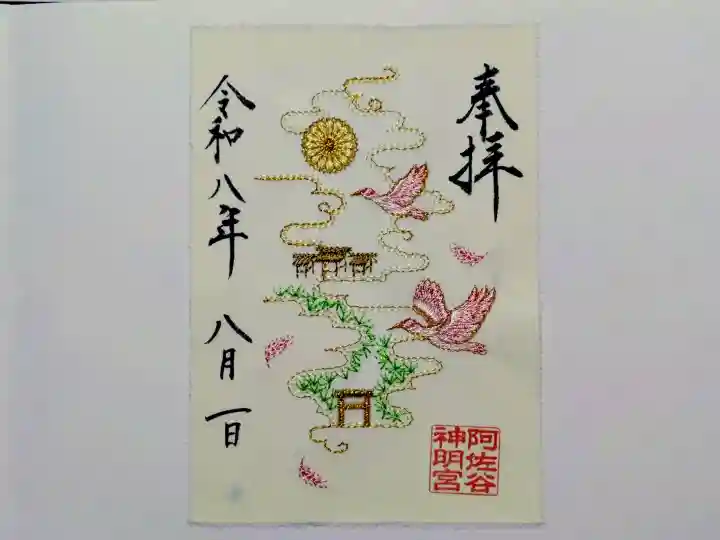 奉拝
阿佐谷
神明宮
令和八年 八月一日